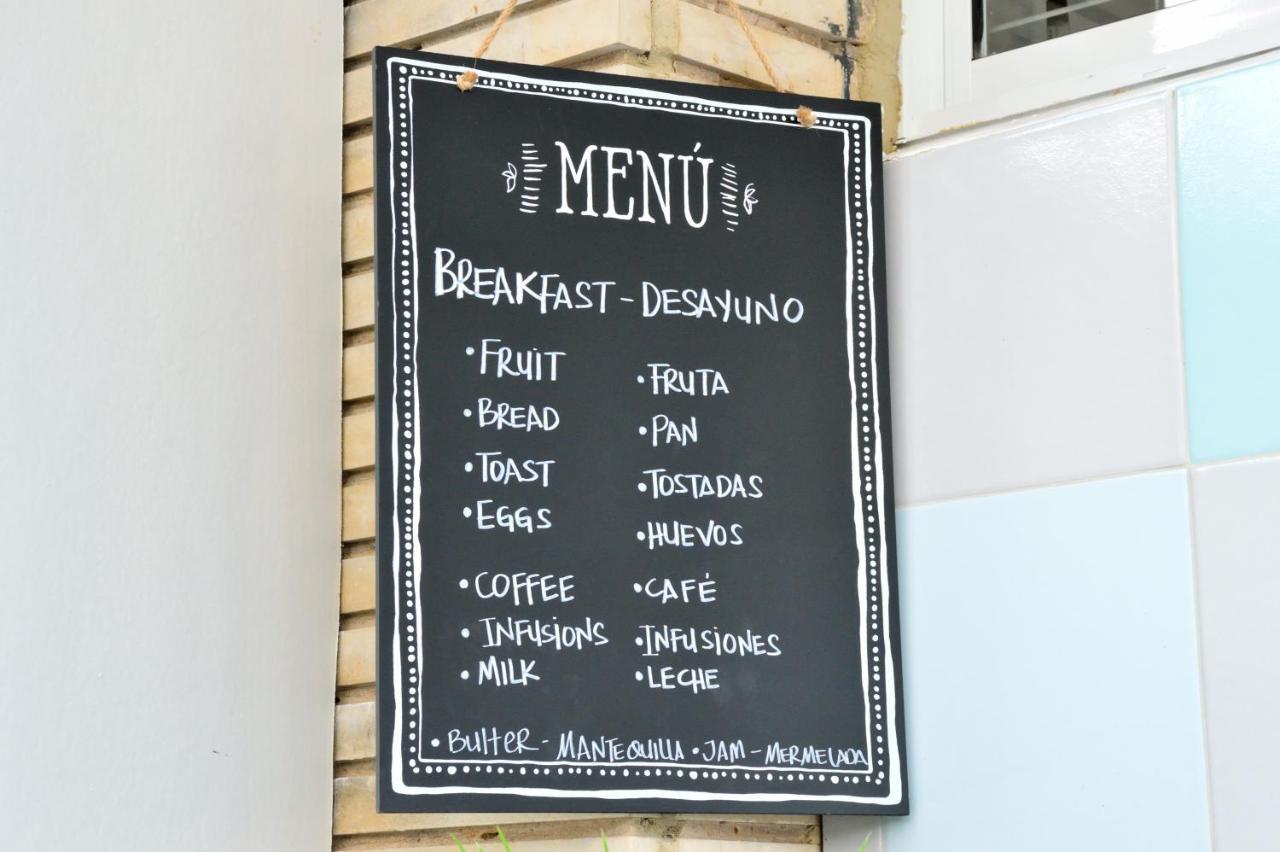 MENÚ
BREAKFAST - DESAYUNO
• FRUIT
• BREAD
• TOAST
• EGGS
• COFFEE
• INFUSIONS
• MILK
• FRUTA
• PAN
• TOSTADAS
• HUEVOS
• CAFÉ
• INFUSIONES
• LECHE
• BUttER - MANTEQUILLA • JAM - MERMELADA